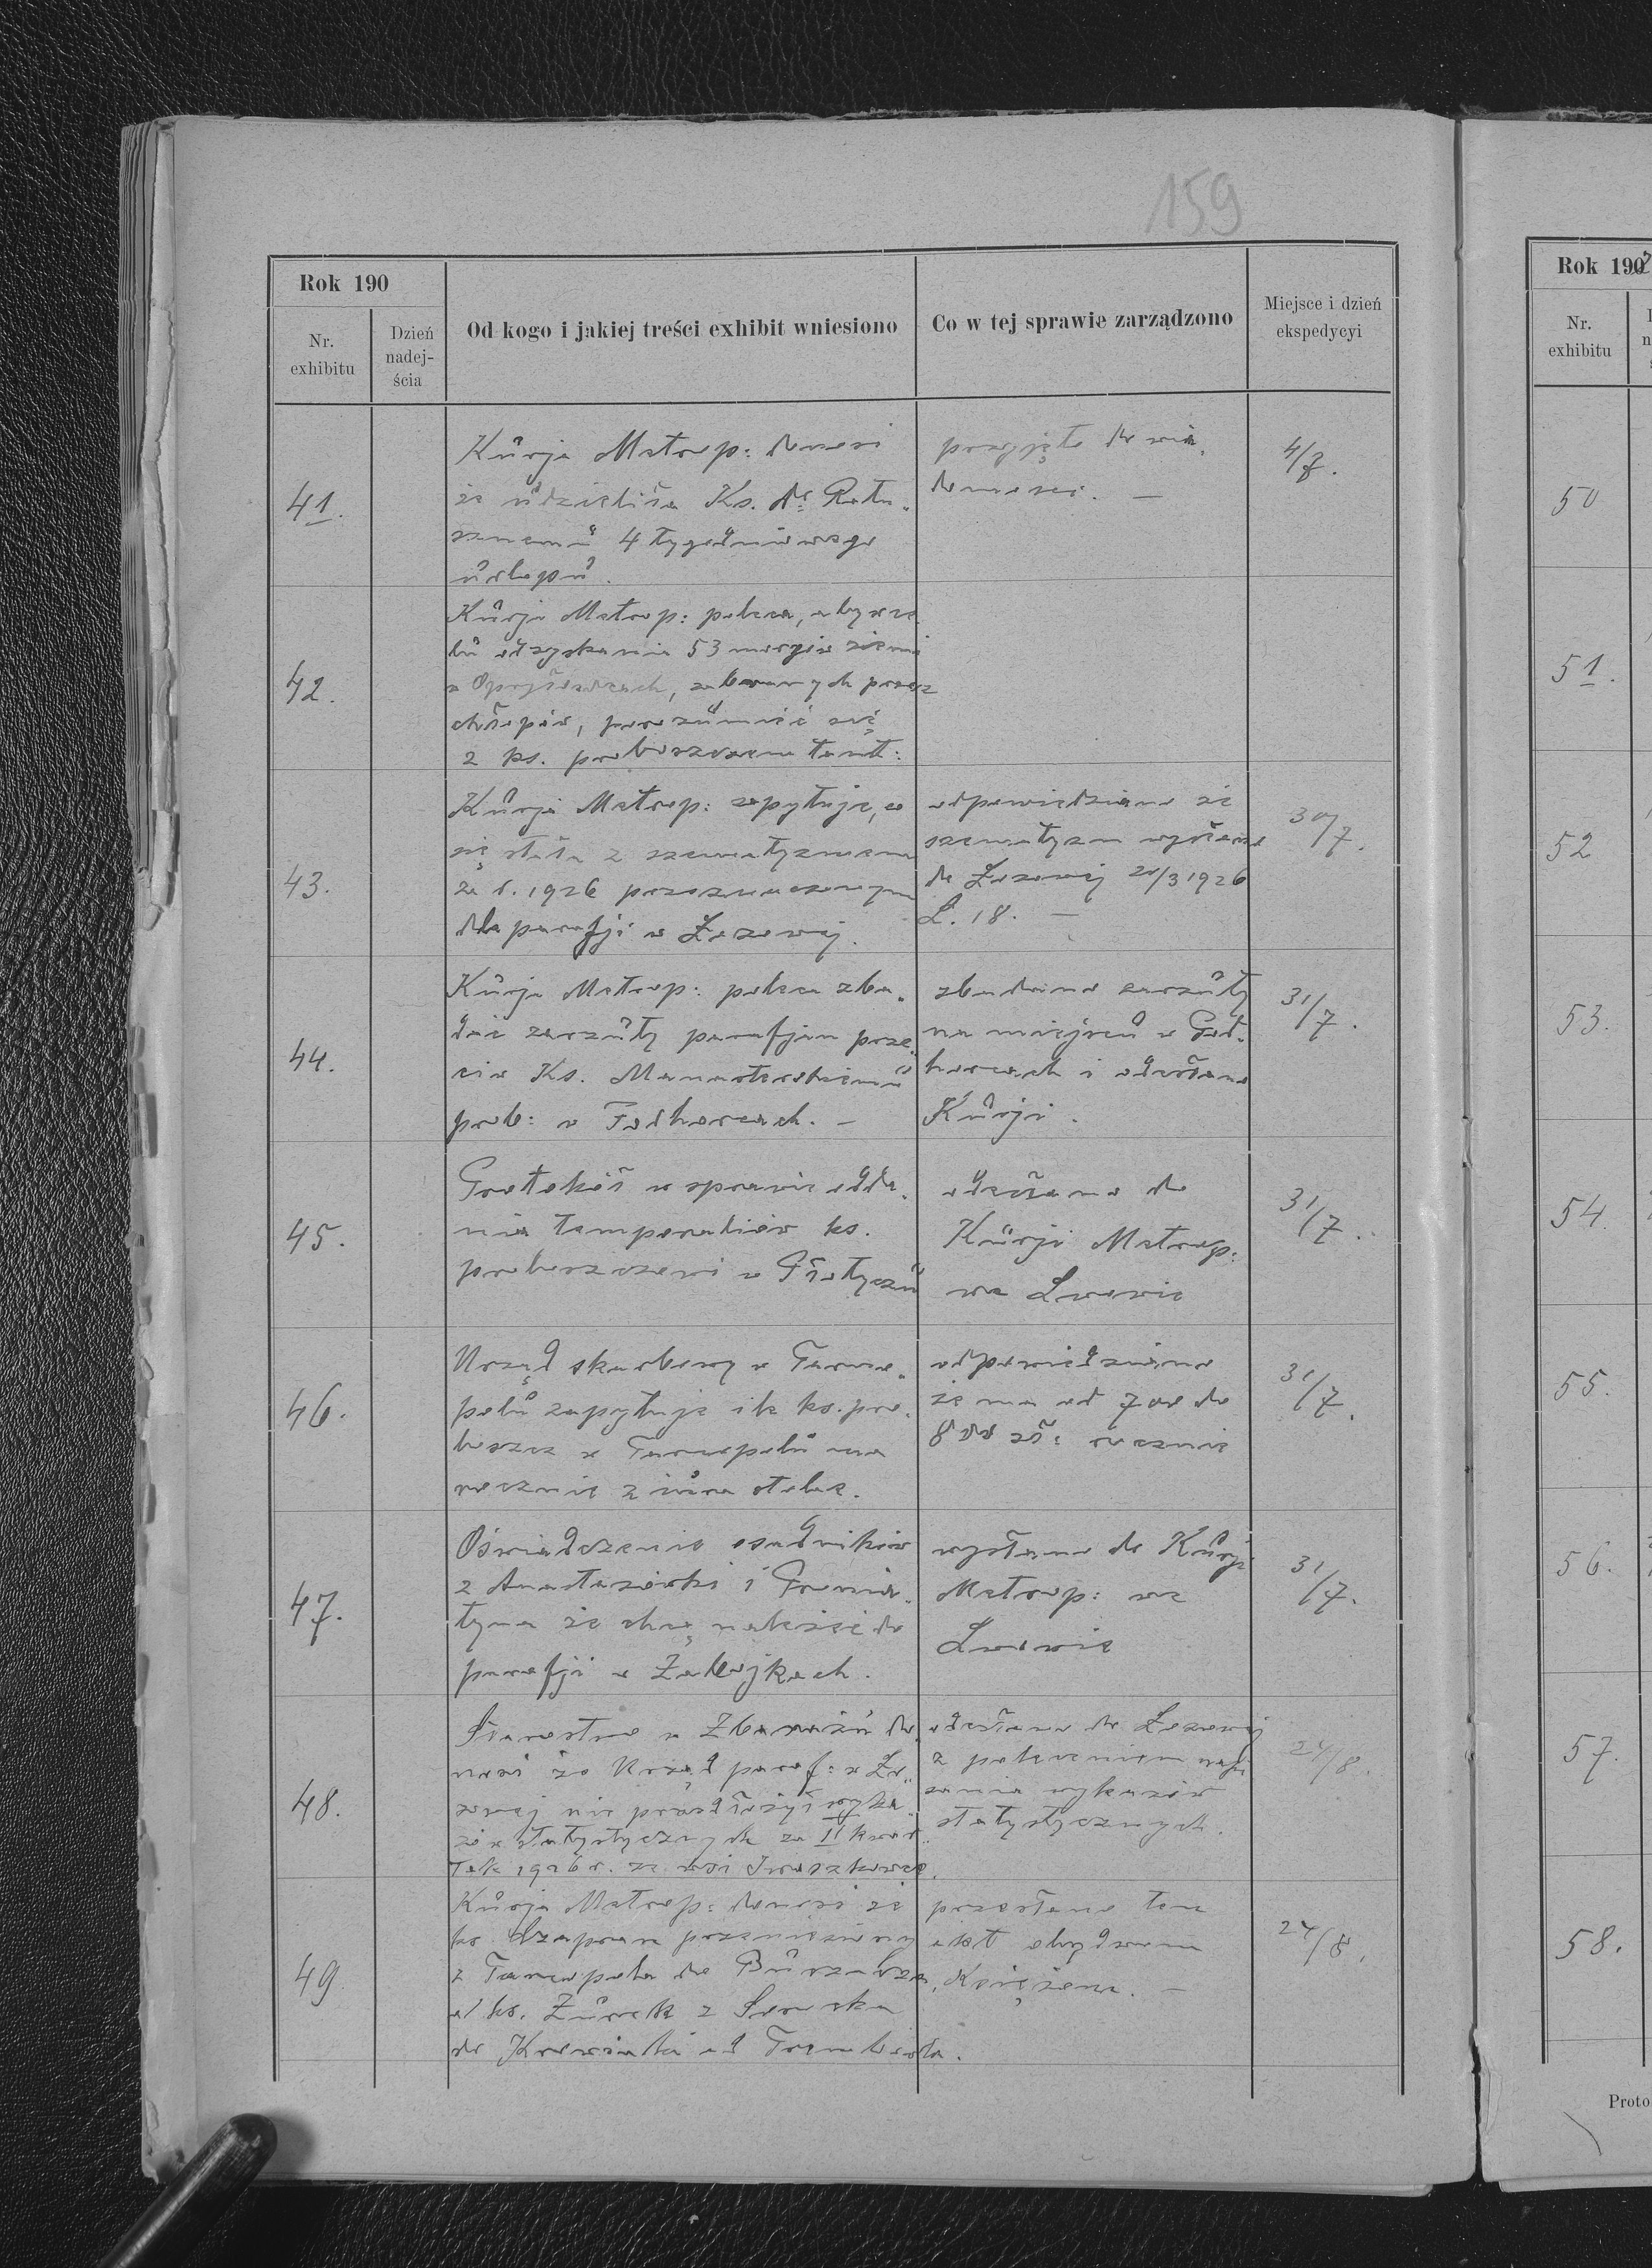 159
Rok 190
Nr. exhibitu
Dzień nadej- ścia
Od kogo i jakiej treści exhibit wniesiono
Co w tej sprawie zarządzono
Miejsce i dzień ekspedycyi
41.
Kurja Metrop: donosi
że udzieliła Ks. Dr Ratu„
sznemu 4 tygodniowego
urlopu.
przyjęto do wia„
domości. —
4/7.
42.
Kurja Metrop: poleca, aby w ce
lu odzyskania 53 morgów ziemi
w zabranych przez
chłopów, porozumieć się
z ks. proboszczem tamt:
43.
Kurja Metrop: zapytuje, co
się stało z szematyzmem
za r. 1926 przeznaczonym
dla parafji w Łozowej.
odpowiedziano że
szematyzm wysłano
do Łozowej 20/3 1926
L. 18. —
30/7.
44.
Kurja Metrop: poleca zba„
dać zarzuty parafjan prze„
ciw Ks. Manasterskiemu
prob: w Podhorcach. —
zbadano zarzuty
na miejscu w Pod„
horcach i odesłano
Kurji.
31/7.
45.
Protokół w sprawie odda„
nia temporaliów ks.
proboszczowi w Płotyczu
odesłano do
Kurji Metrop:
we Lwowie
31/7.
46.
Urząd skarbowy w Tarno„
polu zapytuje ile ks. pro„
boszcz w Tarnopolu ma
rocznie z iura stolae.
odpowiedziano
że ma od 700 do
800 zł: rocznie
31/7.
47.
Oświadczenie osadników
z Anastazówki i Poznia„
tyna że chcą należeć do
parafji w Zabojkach.
wysłano do Kurji
Metrop: we
Lwowie
31/7.
48.
Starostwo w Zbarażu do„
nosi że Urząd paraf: w Ło„
zowej nie przedłożył wyka„
zów statystycznych za II kwar„
tał 1926 r. ze wsi Iwaszkowce.
odesłano do Łozowej
z poleceniem
wykazów
statystycznych.
24/8.
49
Kurja Metrop: donosi że
ks. przeniesiony
z Tarnopola do
a ks. Żurek z
do od Trembowla.
przesłano ten
akt obydwom
Księżom. —
24/8.
Rok 1907
Nr. exhibitu
50
51.
52
53.
54.
55.
56.
57.
58.
Proto